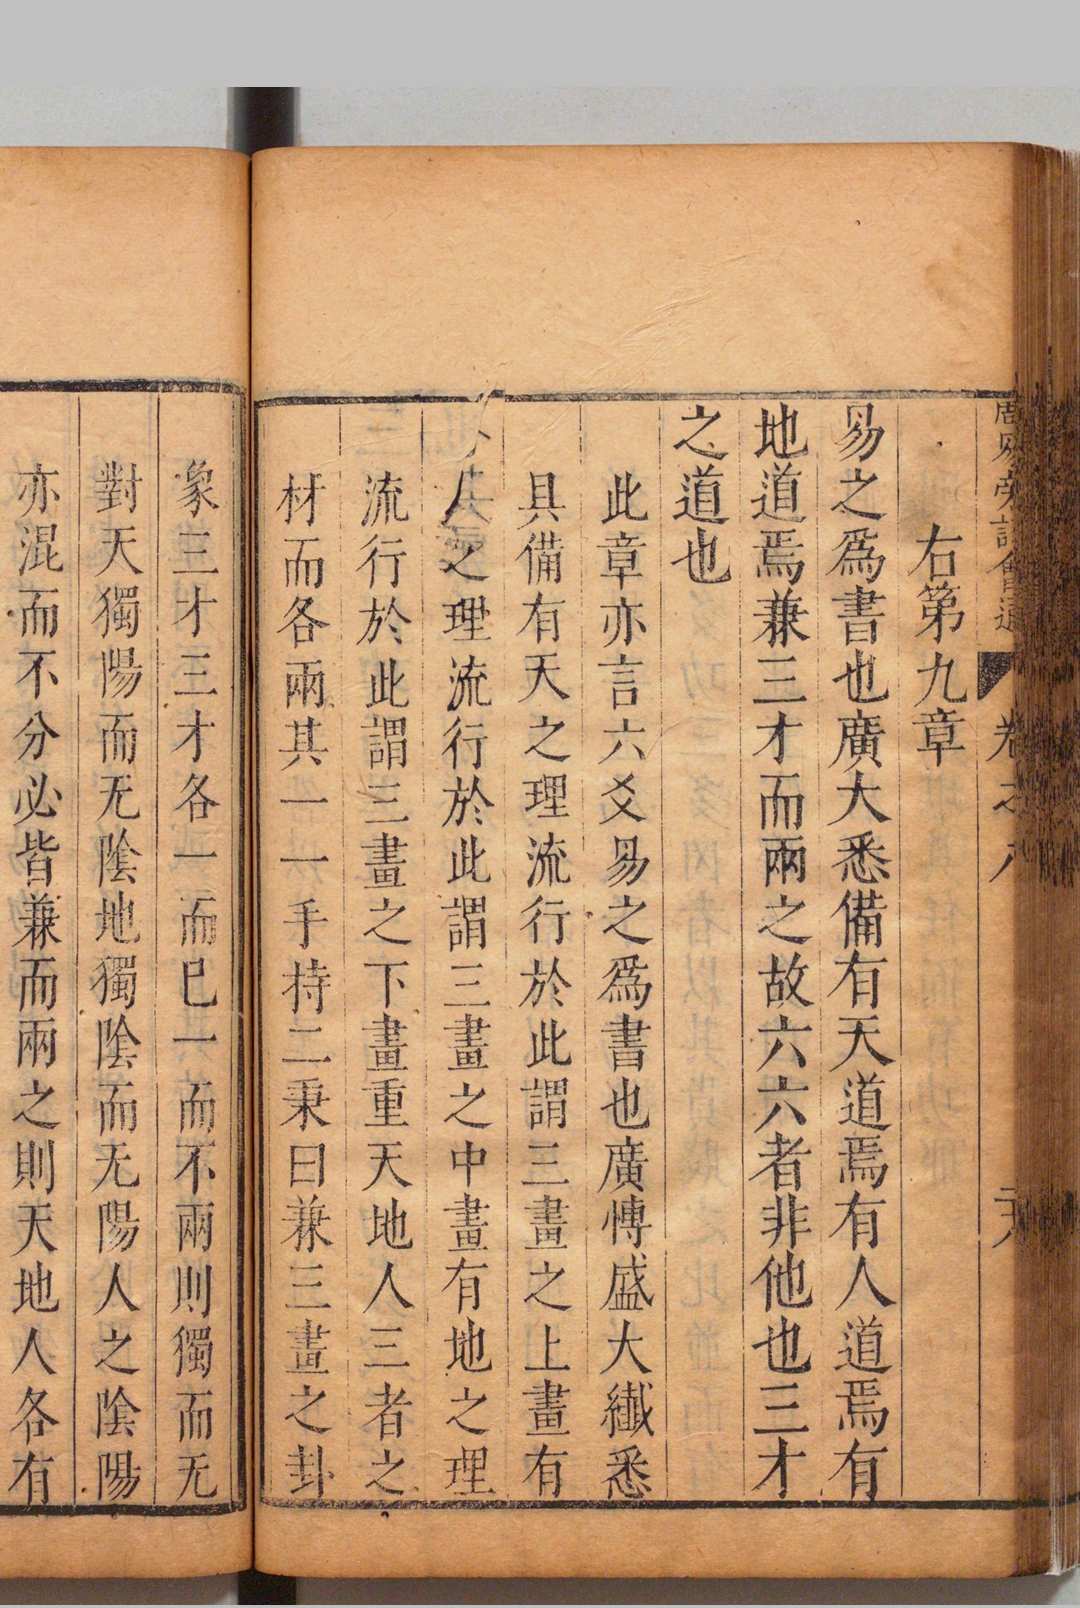 周易旁註會通 卷之八
右第九章
易之爲書也廣大悉備有天道焉有人道焉有
地道焉兼三才而兩之故六六者非他也三才
之道也
此章亦言六爻易之爲書也廣愽盛大纖悉
具備有天之理流行於此謂三畫之上畫有
人之理流行於此謂三畫之中畫有地之理
流行於此謂三畫之下畫重天地人三者之
材而各兩其一一手持二秉曰兼三畫之卦
象三才三才各一而巳一而不兩則獨而无
對天獨陽而无陰地獨陰而无陽人之陰陽
亦混而不分必皆兼而兩之則天地人各有